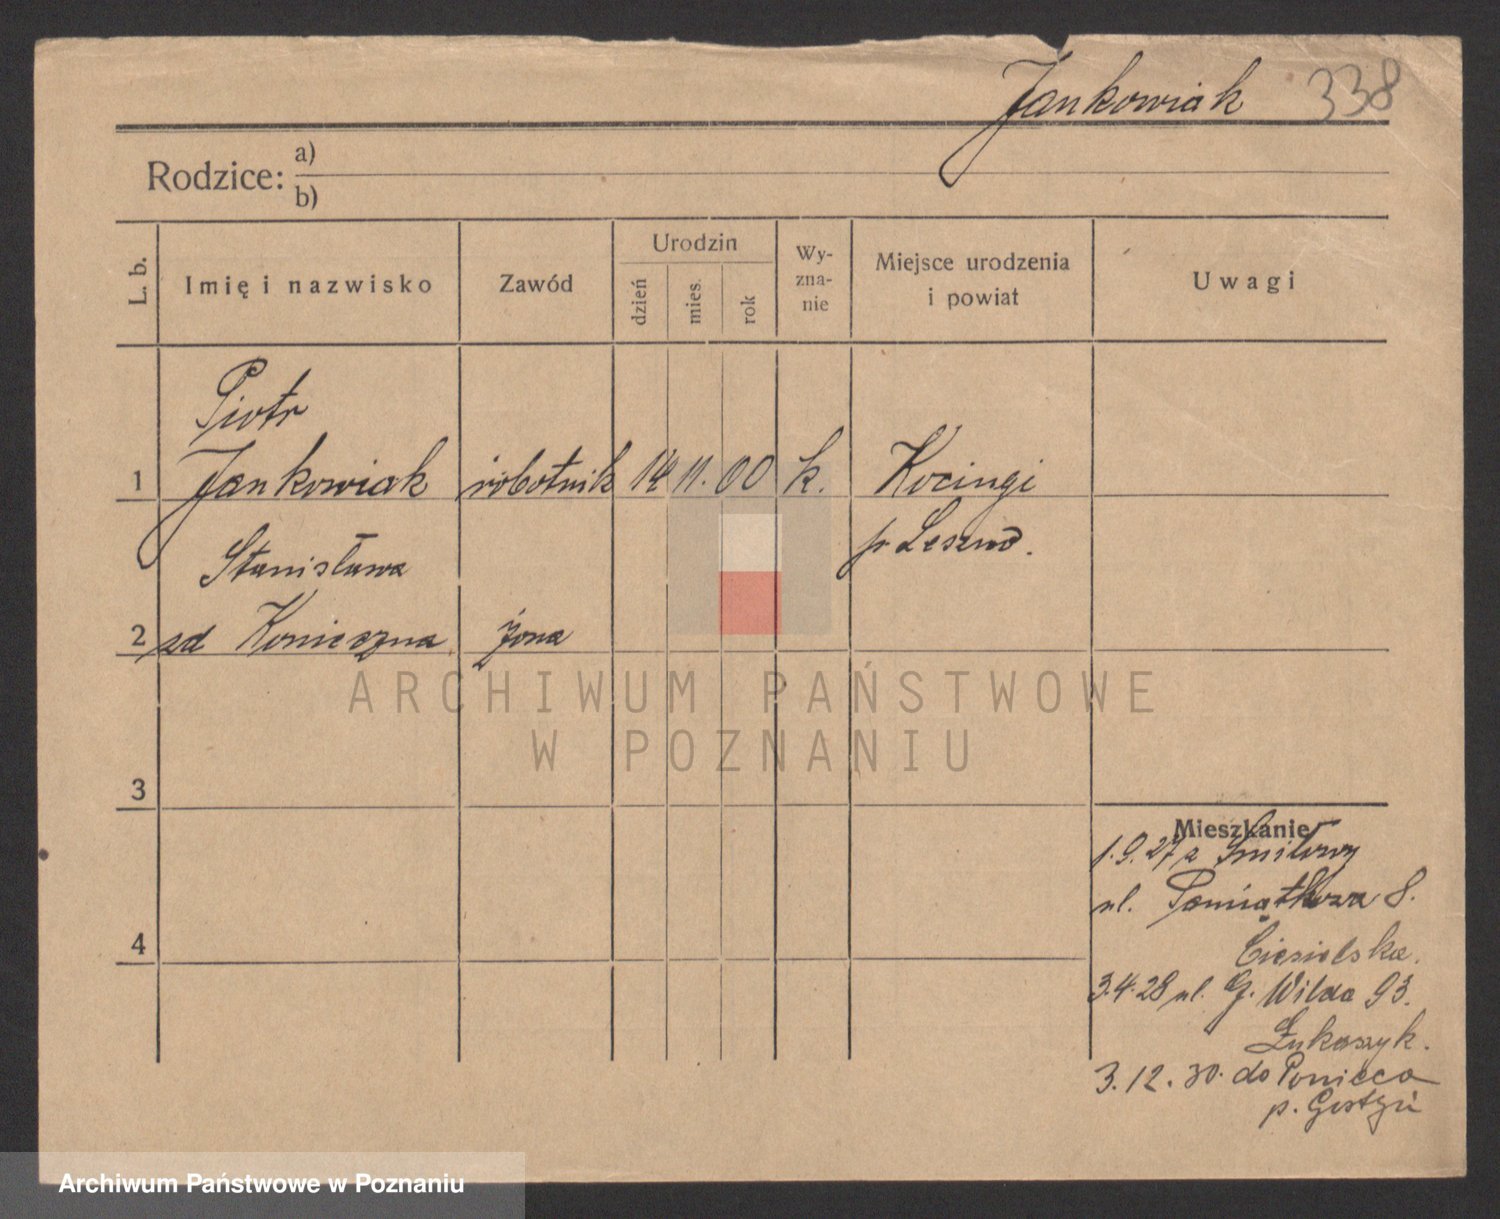 Jankowiak 338
Rodzice: a)
b)
L. b. Imię i nazwisko Zawód Urodzin dzień mies. rok Wy-zna-nie Miejsce urodzenia i powiat Uwagi
Piotr
1 Jankowiak robotnik 14 11. 00 k. Kocingi
Stanisława p Leszno.
2 zd Konieczna żona
ARCHIWUM PAŃSTWOWE
W POZNANIU
3
Mieszkanie
1.9.27 z Smiłowy
ul. Pamiątkowa 8.
4
Ciesielska.
3.4.28 ul. G. Wilda 93.
Łukaszyk.
3.12.30. do Ponieca
p. Gostyń
Archiwum Państwowe w Poznaniu